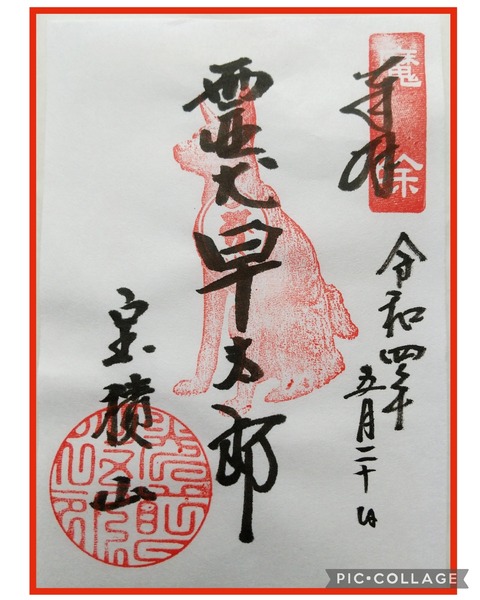 魔除
奉拝
令和四年
五月二十日
霊犬早太郎
宝積山
PIC•COLLAGE